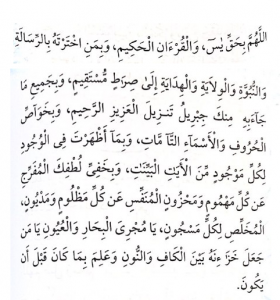 اللَّهُمَّ بِحَقِّ يٰسٓ، وَالْقُرْءَانِ الْحَكِيمِ، وَبِمَنِ اخْتَرْتَهُ بِالرِّسَالَةِ
وَالنُّبُوَّةِ وَالْوِلَايَةِ وَالْهِدَايَةِ إِلَىٰ صِرَٰطٍ مُّسْتَقِيمٍ، وَبِجَمِيعِ مَا
جَآءَبِهِ مِنْكَ جِبْرِيلُ تَنزِيلَ الْعَزِيزِ الرَّحِيمِ، وَبِخَوَآصِّ
الْحُرُوفِ وَالْأَسْمَآءِ التَّآمَّاتِ، وَبِمَآ أَظْهَرْتَ فِى الْوُجُودِ
لِكُلِّ مَوْجُودٍ مِنَ الْأَيٰتِ الْبَيِّنَٰتِ، وَبِخَفِىِّ لُطْفِكَ الْمُفَرِّجِ
عَنْ كُلِّ مَهْمُومٍ وَمَحْزُونٍ الْمُنَفِّسِ عَنْ كُلِّ مَظْلُومٍ وَمَدْيُونٍ،
الْمُخَلِّصِ لِكُلِّ مَسْجُونٍ، يَا مُجْرِىَ الْبِحَارِ وَالْعُيُونِ يَا مَنْ
جَعَلَ خَزَآءِنَهُ بَيْنَ الْكَافِ وَالنُّونِ وَعَلِمَ بِمَا كَانَ قَبْلَ أَن
يَكُونَ.